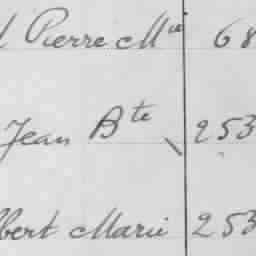 Pierre Mie 68
Jean Bte 253
bert Marie 253